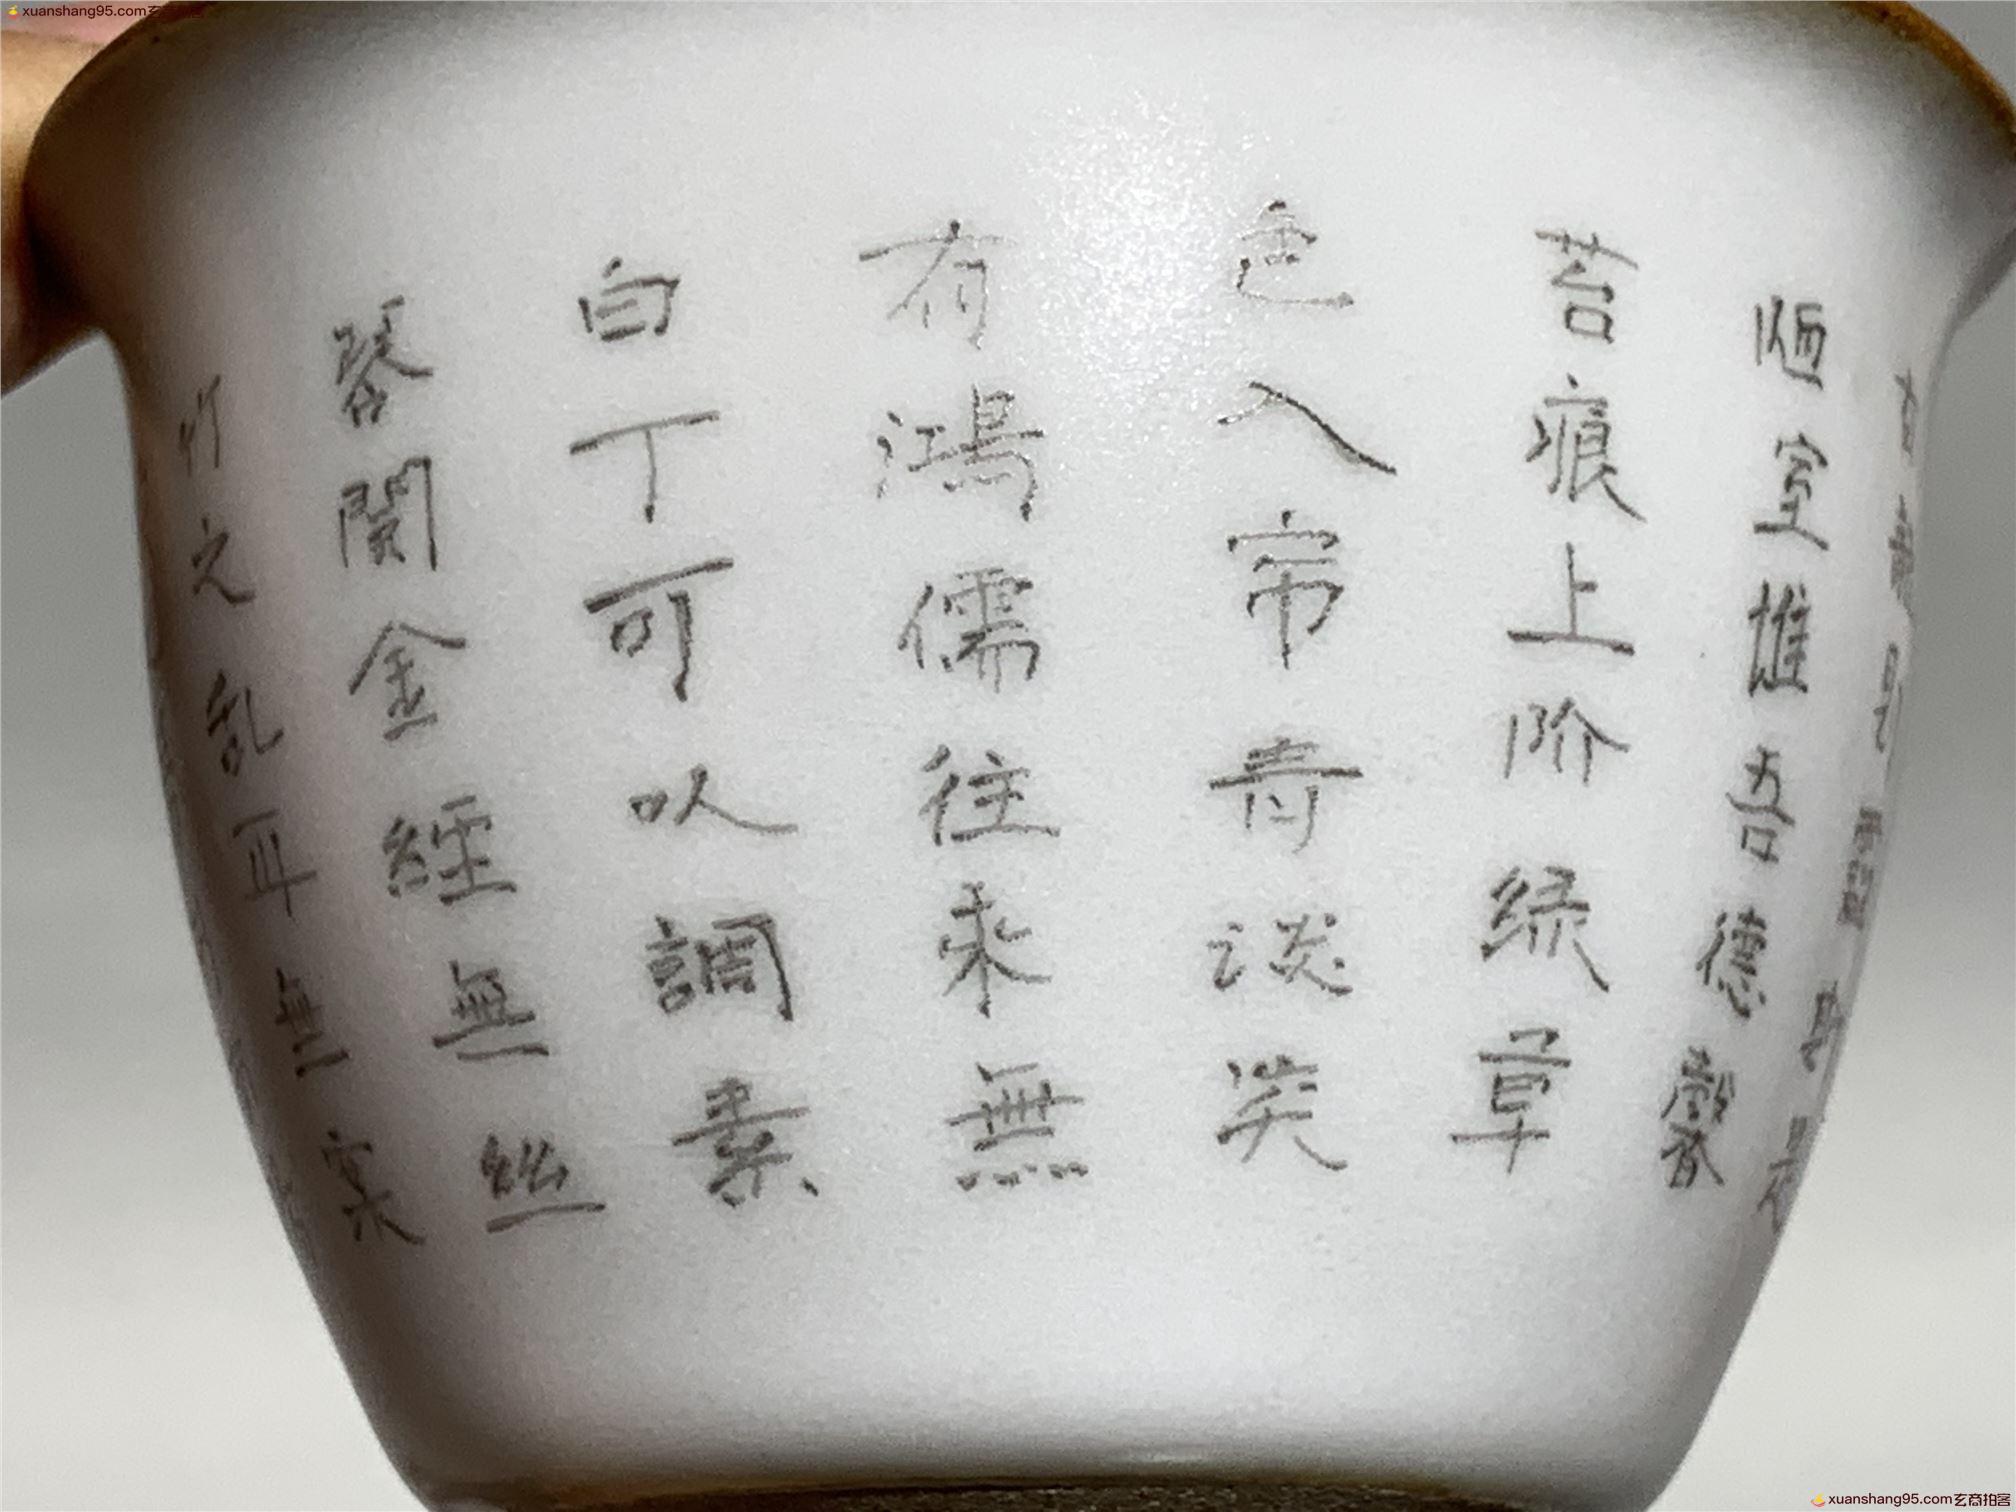 xuanshang95.com玄商拍客
陋室惟吾德馨
苔痕上阶绿草
色入帘青谈笑
有鴻儒往來無
白丁可以調素
琴閱金經無丝
竹之乱耳無案
xuanshang95.com玄商拍客